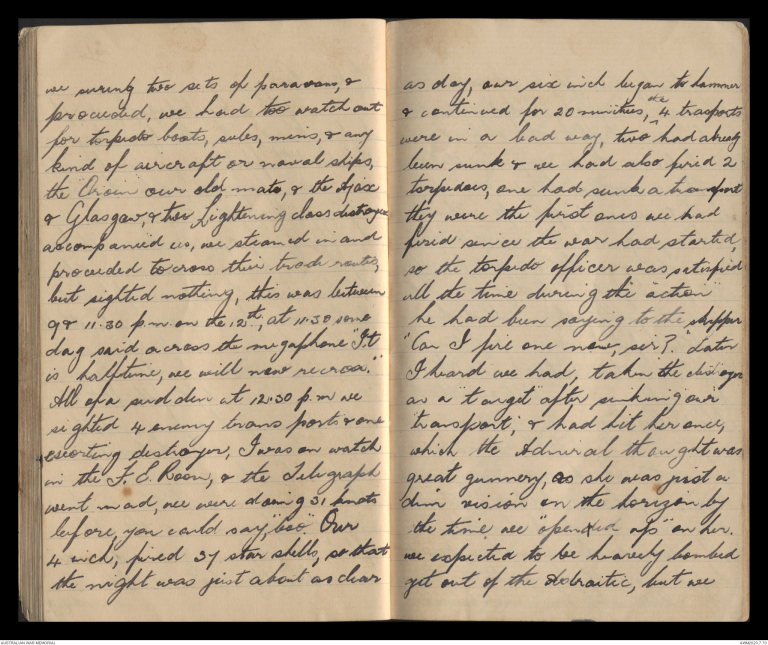 we swing two sets of paravans, &
proceeded, we had too watch out
for torpedo boats, subs, mins, & any
kind of aircraft or naval ships,
the Orion our old mate, & the Ajax
& Glasgow, & two Lightening class destroyers
accompanied us, we steamed in and
proceeded to cross their trade routes,
but sighted nothing, this was between
9 & 11.30 p.m. on the 12th, at 11.30 some
dag said across the megaphone "It
is halftime, we will now recross."
All of a sudden at 12.30 p.m we
sighted 4 enemy transports & one
escorting destroyer, I was on watch
in the F.E. Room, & the Telegraph
went mad, we were doing 31 knots
before, you could say, "boo" Our
4 inch, fired 37 star shells, so that
the night was just about as clear
as day, our six inch began to hammer
& continued for 20 minites, the 4 trasports
were in a bad way, two had already
been sunk & we had also fired 2
torpedoes, one had sunk a transport
they were the first ones we had
fired since the war had started,
so the torpedo officer was satisfied
all the time during the "action"
he had been saying to the skipper
"Can I fire one now, sir?." Later
I heard we had, taken the destroyer
as a "target" after sinking our
"transport", & had hit her once,
which the Admiral thought was
great gunnery, as she was just a
dim vision on the horizon by
the time we "opended up" on her.
we expected to be heavely bombed
get out of the Adraitic, but we
AUSTRALIAN WAR MEMORIAL